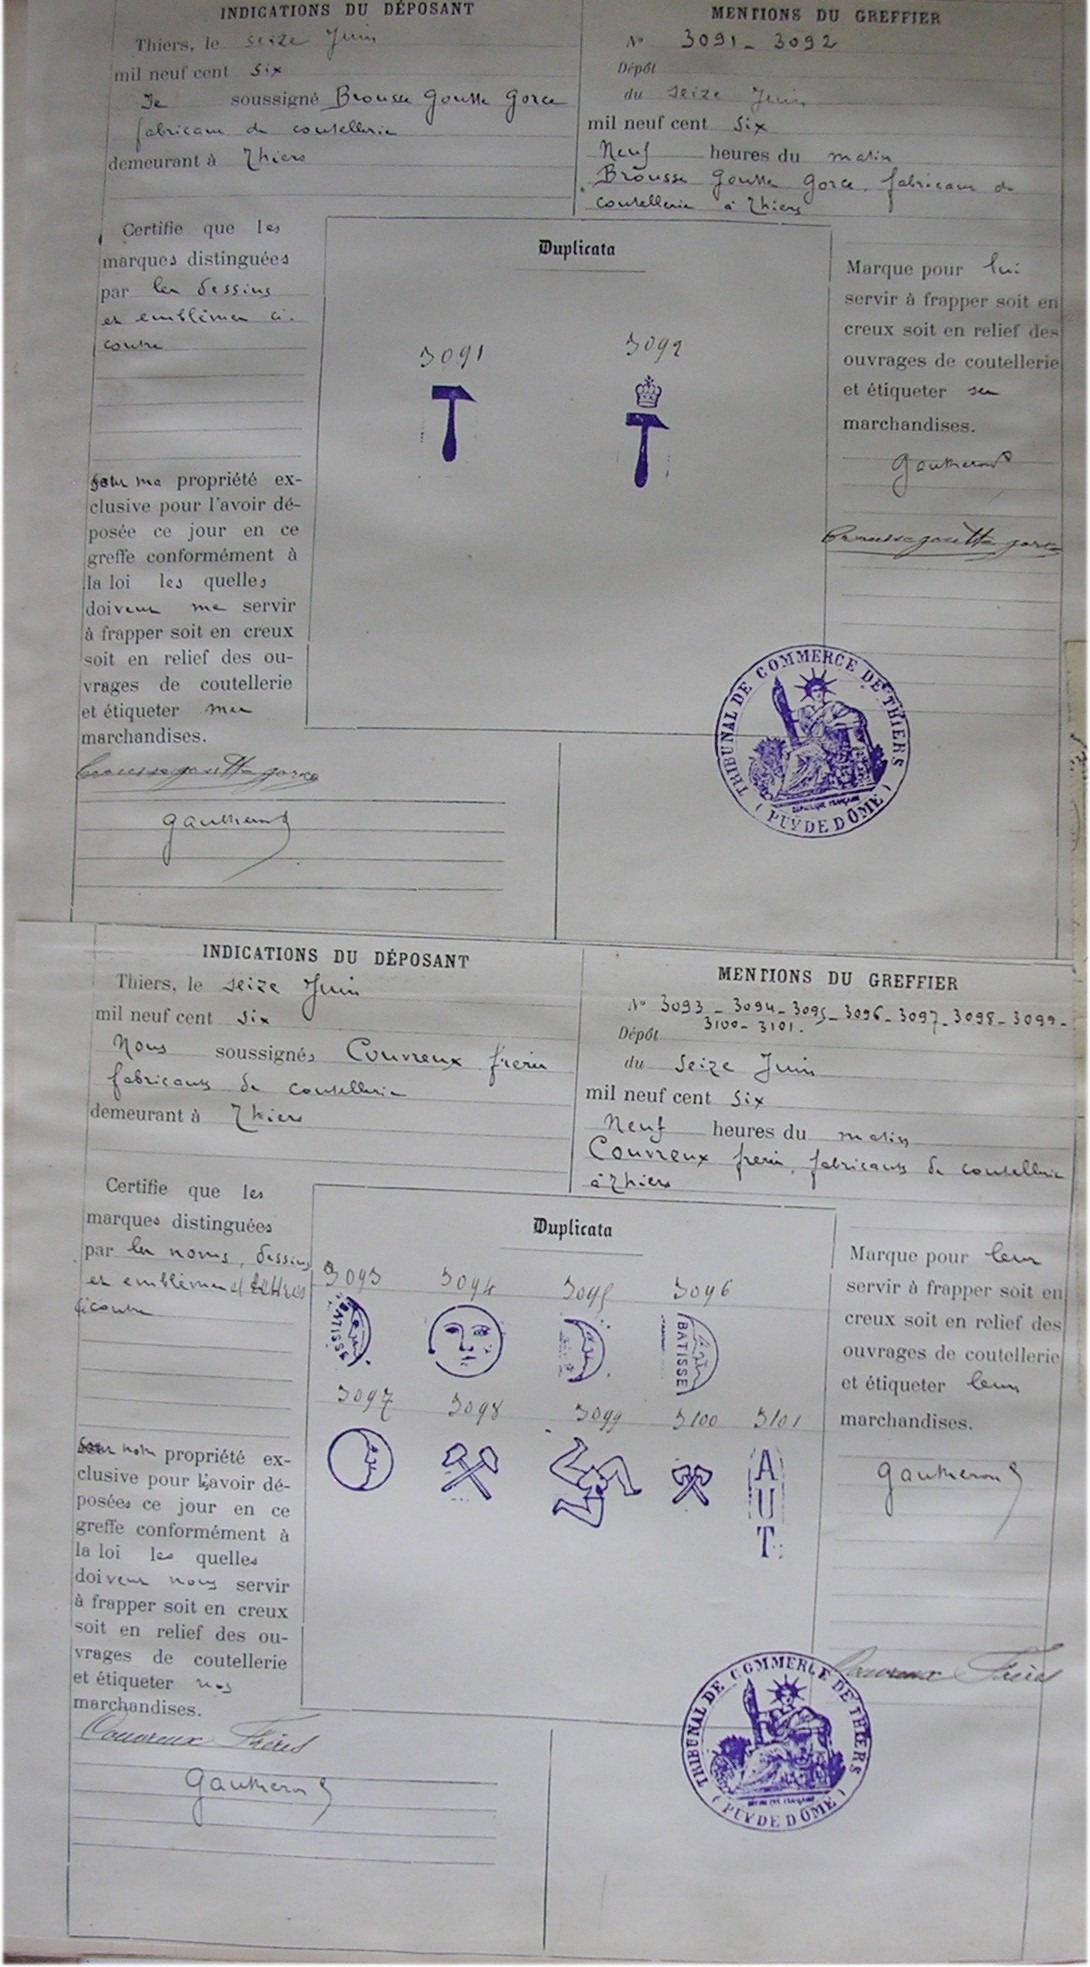 INDICATIONS DU DÉPOSANT
Thiers, le seize Juin
mil neuf cent six
Je soussigné Brousse Goutte Gorce
fabricant de coutellerie
demeurant à Thiers
MENTIONS DU GREFFIER
No 3091 - 3092
Dépôt
du seize Juin
mil neuf cent six
Neuf heures du matin
Brousse Goutte Gorce, fabricant de
coutellerie à Thiers
Certifie que les
marques distinguées
par les dessins
et emblèmes ci-
contre
sont ma propriété ex-
clusive pour l'avoir dé-
posée ce jour en ce
greffe conformément à
la loi les quelles
doivent me servir
à frapper soit en creux
soit en relief des ou-
vrages de coutellerie
et étiqueter mes
marchandises.
Brousse goutte gorce
Gautheron
Duplicata
3091 3092
Marque pour lui
servir à frapper soit en
creux soit en relief des
ouvrages de coutellerie
et étiqueter ses
marchandises.
Gautheron
Brousse goutte gorce
TRIBUNAL DE COMMERCE DE THIERS
RÉPUBLIQUE FRANÇAISE
( PUY DE DÔME )
INDICATIONS DU DÉPOSANT
Thiers, le seize Juin
mil neuf cent six
Nous soussignés Couvreux frères
fabricants de coutellerie
demeurant à Thiers
MENTIONS DU GREFFIER
No 3093 - 3094 - 3095 - 3096 - 3097 - 3098 - 3099 -
3100 - 3101.
Dépôt
du seize Juin
mil neuf cent six
Neuf heures du matin
Couvreux frères, fabricants de coutellerie
à Thiers
Certifie que les
marques distinguées
par les noms, dessins
et emblèmes et lettres
ci contre
sont notre propriété ex-
clusive pour les avoir dé-
posées ce jour en ce
greffe conformément à
la loi les quelles
doivent nous servir
à frapper soit en creux
soit en relief des ou-
vrages de coutellerie
et étiqueter nos
marchandises.
Couvreux Frères
Gautheron
Duplicata
3093 3094 3095 3096
BATISSE
BATISSE
3097 3098 3099 3100 3101
A
U
T
Marque pour leur
servir à frapper soit en
creux soit en relief des
ouvrages de coutellerie
et étiqueter leurs
marchandises.
Gautheron
Couvreux Frères
TRIBUNAL DE COMMERCE DE THIERS
RÉPUBLIQUE FRANÇAISE
( PUY DE DÔME )